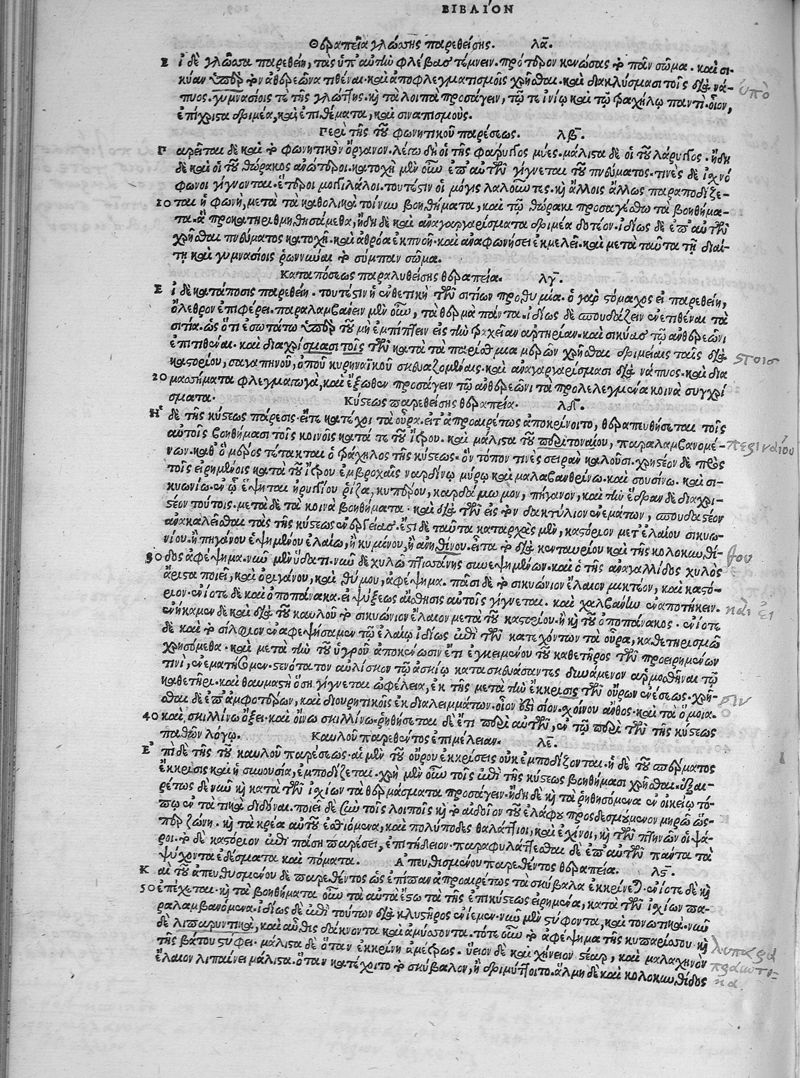 ΒΙΒΛΙΟΝ
Θεραπεία γλώσσης παρεθείσης. λα.
Εἰ δὲ γλῶσσα παρεθείη, τὰς ὑπ' αὐτὴν φλέβας τέμνειν. πρότερον κενώσας τὸ πᾶν σῶμα. καὶ σι-
κύαν ὑπὸ τὸν ἀνθερεῶνα τιθέναι. καὶ ἀποφλεγματισμοῖς χρῆσθαι. καὶ διακλύσμασι τοῖς διὰ νά-
πυος. γυμνασίοις τε τῆς γλώττης. καὶ τὰ λοιπὰ προσάγειν, τῷ τε ἰνίῳ καὶ τῷ τραχήλῳ παντὶ. οἷον,
ἐπίχριστα δριμέα, καὶ ἐπιθέματα, καὶ σιναπισμούς.
Περὶ τῆς τοῦ φωνητικοῦ παρέσεως. λβ.
Παρεῖται δὲ καὶ τὸ φωνητικὸν ὄργανον. λέγω δὴ οἱ τῆς φάρυγγος μύες. μάλιστα δὲ οἱ τοῦ λάρυγγος. ἤδη
δὲ καὶ οἱ τοῦ θώρακος ἀνώτεροι. κατοχὴ μὲν οὖν ἐπ' αὐτῶν γίγνεται τοῦ πνεύματος. τινὲς δὲ ἰσχνό
φωνοι γίγνονται. ἕτεροι μογιλάλοι. τουτέστιν οἱ μόγις λαλοῦντες. καὶ ἄλλοις ἄλλως παραποδίζε-
20 ται ἡ φωνή, μετὰ τὰ καθολικὰ τοίνυν βοηθήματα, καὶ τῷ θώρακι προσαγέσθω τὰ βοηθήμα-
τα. ἃ προκατηριθμησάμεθα, ἤδη δὲ καὶ ἀναγαργαρίσματα δριμέα δοτέον. ἰδίως δὲ ἐπ' αὐτῶν
χρῆσθαι πνεύματος κατοχῇ. καὶ ἀθρόᾳ ἐκπνοῇ. καὶ ἀναφωνήσει ἐμμελεῖ. καὶ μετὰ ταῦτα τῇ διαί-
τῃ καὶ γυμνασίοις ῥωννύναι τὸ σύμπαν σῶμα.
Καταπόσεως παραλυθείσης θεραπεία. λγ.
Εἰ δὲ κατάποσις παρεθείη. τουτέστιν ἡ ἐνθετικὴ τῶν σιτίων προθυμία. ὁ γὰρ στόμαχος εἰ παρεθείη,
ὄλεθρον ἐπιφέρει. παραλαμβάνειν μὲν οὖν, τὰ θερμὰ πάντα. ἰδίως δὲ σπουδάζειν ἐνεπιθέναι τὰ
σιτία. ὡς ὅτι ἐσωτάτω ὑπὲρ τοῦ μὴ ἐμπίπτειν εἰς τὴν τραχεῖαν ἀρτηρίαν. καὶ σικύας τῷ ἀνθερεῶνι
ἐπιτιθέναι. καὶ διαχρίσμασι τοῖς τῶν κατὰ τὰ παρίσθμια μερῶν χρῆσθαι δριμείαις ταῖς διὰ
καστορίου, σαγαπηνοῦ, ὀποῦ κυρηναϊκοῦ σκευαζομέναις. καὶ ἀναγαργαρίσμασι διὰ νάπυος. καὶ δια
20 μασσήματα φλεγμαγωγά, καὶ ἔξωθεν προσάγειν τῷ ἀνθερεῶνι τὰ προλελεγμένα κοινὰ συγχρί
σματα. Κύστεως παρεθείσης θεραπεία. λδ.
Ἡ δὲ τῆς κύστεως πάρεσις. εἴτε κατέχοι τὰ οὖρα. εἴτ' ἀπροαιρέτως ἀποκρίνοιτο, θεραπευθήσεται τοῖς
αὐτοῖς βοηθήμασι τοῖς κοινοῖς κατά τε τοῦ ἤτρου. καὶ μάλιστα τοῦ περιτοναίου, παραλαμβανομέ-
νων. καθ' ὃ μέρος τέτακται ὁ τράχηλος τῆς κύστεως. ὃν τόπον τινὲς σειρὰν καλοῦσι. χρηστέον δὲ πρὸς
τοῖς εἰρημένοις κατὰ τοῦ ἤτρου ἐμβροχαῖς ναρδίνῳ μύρῳ καὶ μαλαβαθρίνῳ. καὶ σουσίνῳ. καὶ σι-
κυωνίῳ. ἐν ᾧ ἕψηται ἠρυγγίου ῥίζα, κυπέρου, καρδάμωμον, πήγανον, καὶ τὴν ἕδραν δὲ διαχρι-
στέον τούτοις. μετὰ δὲ τὰ κοινὰ βοηθήματα. καὶ διὰ τῶν εἰς τὸν δακτύλιον ἐνεμάτων, σπουδαστέον
ἀνακαλεῖσθαι τὰς τῆς κύστεως ἐνεργείας. ἔστι δὲ ταῦτα καταρχὰς μὲν, καστόριον μετ' ἐλαίου σικυω-
νίου. ἢ πηγάνου ἑψημένου ἐλαίῳ, ἢ κυμίνου, ἢ ἀνηθίνου. εἶτα τὸ διὰ κενταυρίου καὶ τῆς κολοκυνθί-
30 δος ἀφέψημα. νῦν μὲν ὕδατι. νῦν δὲ χυλῷ πτισάνης συνεψημένων. καὶ ὁ τῆς ἀναγαλλίδος χυλὸς
ἄριστα ποιεῖ, καὶ ὀριγάνου, καὶ θύμου, ἀφέψημα. πᾶσι δὲ τὸ σικυώνιον ἔλαιον μικτέον, καὶ καστό-
ριον. ἐνίοτε δὲ καὶ ὀποπάνακα. εἰ ψύξεως αἴσθησις αὐτοῖς γίγνεται. καὶ χαλβάνην ἐναποτήκειν.
ἐνήκαμεν δὲ καὶ διὰ τοῦ καυλοῦ τὸ σικυώνιον ἔλαιον μετὰ τοῦ καστορίου. ἢ καὶ τοῦ ὀποπάνακος. ἐνίοτε
δὲ καὶ τὸ σίλφιον ἐναφεψήσαμεν τῷ ἐλαίῳ. ἰδίως ἐπὶ τῶν κατεχόντων τὰ οὖρα, καθετηρισμῷ
χρησόμεθα. καὶ μετὰ τὴν τοῦ ὑγροῦ ἀποκένωσιν ἔτι ἐγκειμένου τοῦ καθετῆρος τῶν προειρημένων
τινὶ, ἐνεματίζομεν. στενότατον αὐλίσκον τῷ ἀσκίῳ κατασκευάσαντες δυνάμενον ἁρμοσθῆναι τῷ
καθετῆρι. καὶ θαυμαστὴ ὅση γίγνεται ὠφέλεια, ἐκ τῆς μετὰ τὴν ἔκκρισιν τῶν οὔρων ἐνέσεως. χρῆ-
σθαι δὲ ἐπ' ἀμφοτέρων, καὶ διουρητικοῖς ἐκ διαλειμμάτων. οἷόν ἐστι σίον. σχοίνου ἄνθος. καὶ τὰ ὅμοια.
40 καὶ σκιλλίνῳ ὄξει. καὶ οἴνῳ σκιλλίνῳ. ῥηθήσεται δὲ ἔτι περὶ αὐτῶν, ἐν τῷ περὶ τῶν τῆς κύστεως
παθῶν λόγῳ. Καυλοῦ παρεθέντος ἐπιμέλεια. λε.
Ἐπὶ δὲ τῆς τοῦ καυλοῦ παρέσεως. αἱ μὲν τοῦ οὔρου ἐκκρίσεις οὐκ ἐμποδίζονται. ἡ δὲ τοῦ σπέρματος
ἔκκρισις καὶ ἡ συνουσία, ἐμποδίζεται. χρὴ μὲν οὖν τοῖς ἐπὶ τῆς κύστεως βοηθήμασι χρῆσθαι. ἐξαι-
ρέτως δὲ νῦν καὶ κατὰ τῶν ἰσχίων τὰ θερμάσματα προσάγειν. ἤδη δὲ καὶ τὰ ῥηθησόμενα ἐν οἰκείῳ τό-
πῳ ἐντατικὰ διδόναι. ποιεῖ δὲ σὺν τοῖς λοιποῖς καὶ τὸ αἰδοῖον τοῦ ἐλάφου προσδεσμούμενον μηρῷ ὥς-
περ ζώνη. καὶ τὰ κρέα αὐτοῦ ἐσθιόμενα, καὶ πολύποδες θαλάττιοι, καὶ ἐχῖνοι, καὶ τῶν πτηνῶν οἱ ψά-
ροι. τὸ δὲ καστόριον ἐπὶ πάσῃ παρέσει, ἐπιτήδειον. παραφυλάττεσθαι δὲ ἐπ' αὐτῶν πάντα τὰ
ψύχοντα ἐδέσματα καὶ πόματα. Ἀπευθυσμένου παρεθέντος θεραπεία. λς.
Καὶ τοῦ ἀπευθυσμένου δὲ παρεθέντος ὡς ἐπίπαν ἀπροαιρέτως τὰ σκύβαλα ἐκκρίνεται. ἐνίοτε δὲ καὶ
50 ἐπέχεται. καὶ τὰ βοηθήματα οὖν τὰ αὐτὰ ἔστω τὰ ἐπὶ κύστεως εἰρημένα, κατὰ τῶν ἰσχίων πα-
ραλαμβανόμενα. ἰδίως δὲ ἐπὶ τούτων διὰ κλυστῆρος ἐνίεμεν. νῦν μὲν στύφοντα, καὶ τονωτικά. νῦν
δὲ λιπαρυντικὰ, καὶ αὖθις δάκνοντα καὶ ἀμύσσοντα. τότε οὖν τὸ ἀφέψημα τῆς κυπαρίσσου καὶ
τῆς βάτου στύφει. μάλιστα δὲ ὅταν ἐκκρίνῃ ἀμέτρως. ὕειον δὲ καὶ χήνειον στέαρ, καὶ μαλάχινον
ἔλαιον λιπαίνει μάλιστα. ὅταν κατέχοιτο τὸ σκύβαλον, ἢ δριμύττοιτο. ἅλμη δὲ καὶ κολοκυνθίδος
ὑπὸ
στοισ
περιναίου
θου
καὶ εἰ
σιν